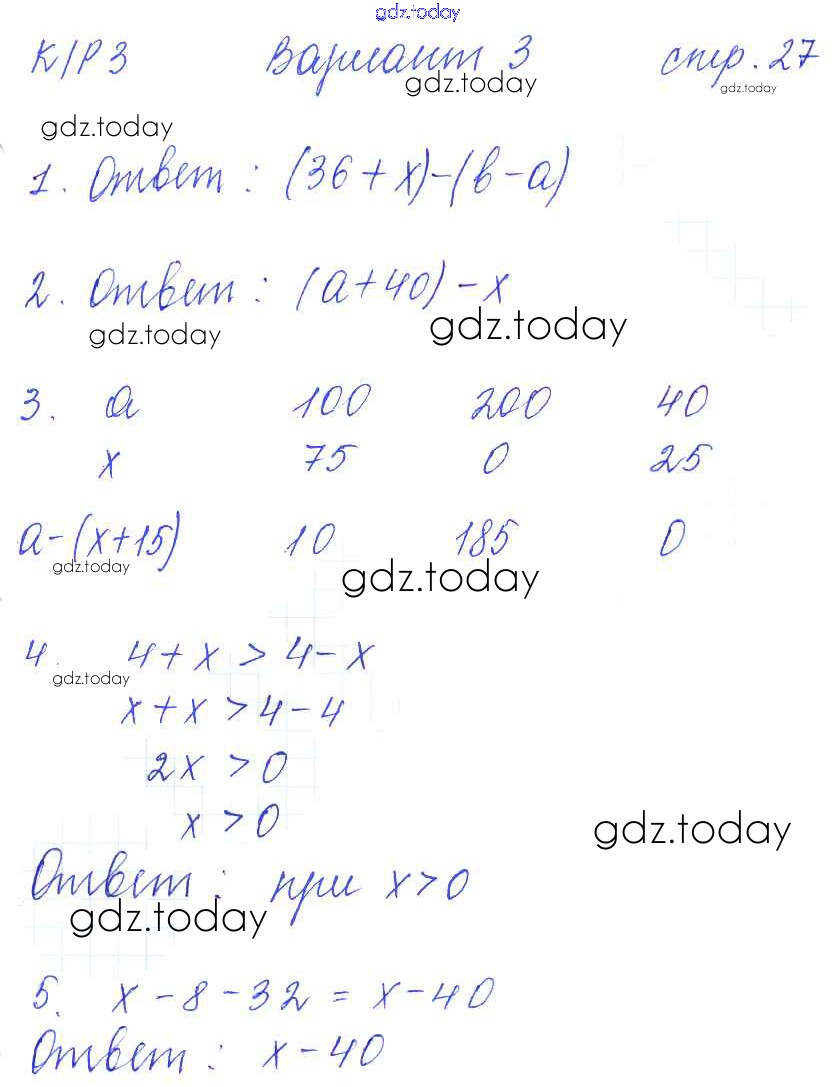 gdz.today
К/Р 3 Вариант 3 стр. 27
gdz.today gdz.today
gdz.today
1. Ответ: (36 + x) - (в - а)
2. Ответ: (а + 40) - x
gdz.today gdz.today
3. а 100 200 40
x 75 0 25
а - (x + 15) 10 185 0
gdz.today gdz.today
4. 4 + x > 4 - x
gdz.today
x + x > 4 - 4
2x > 0
x > 0
gdz.today
Ответ: при x > 0
gdz.today
5. x - 8 - 32 = x - 40
Ответ: x - 40